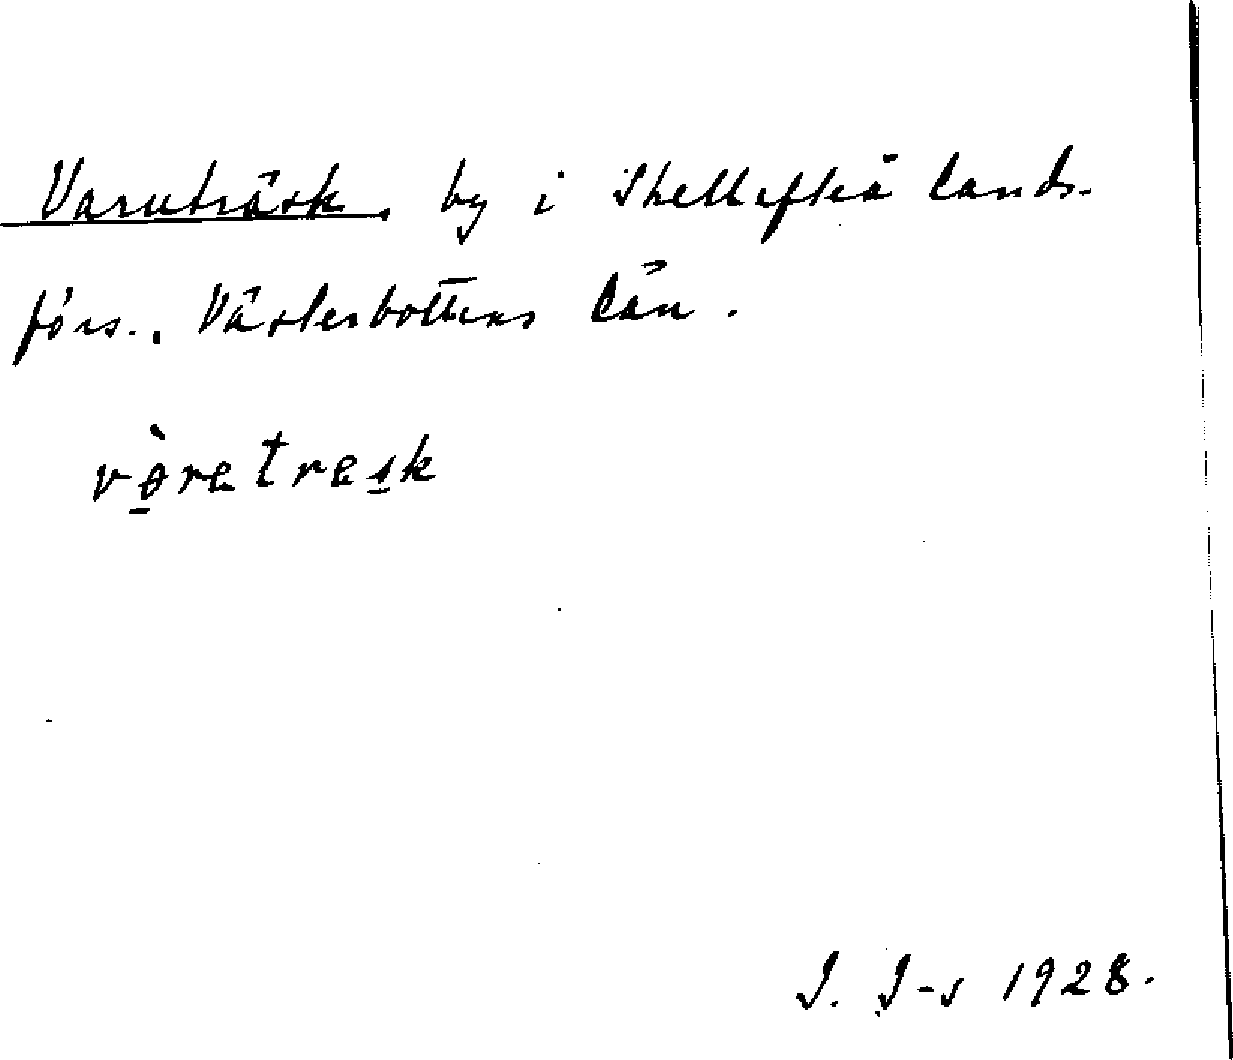 Varuträsk, by i Skellefteå lands-
förs., Västerbottens län.
vɵ̱̀retresk
J. J-s 1928.